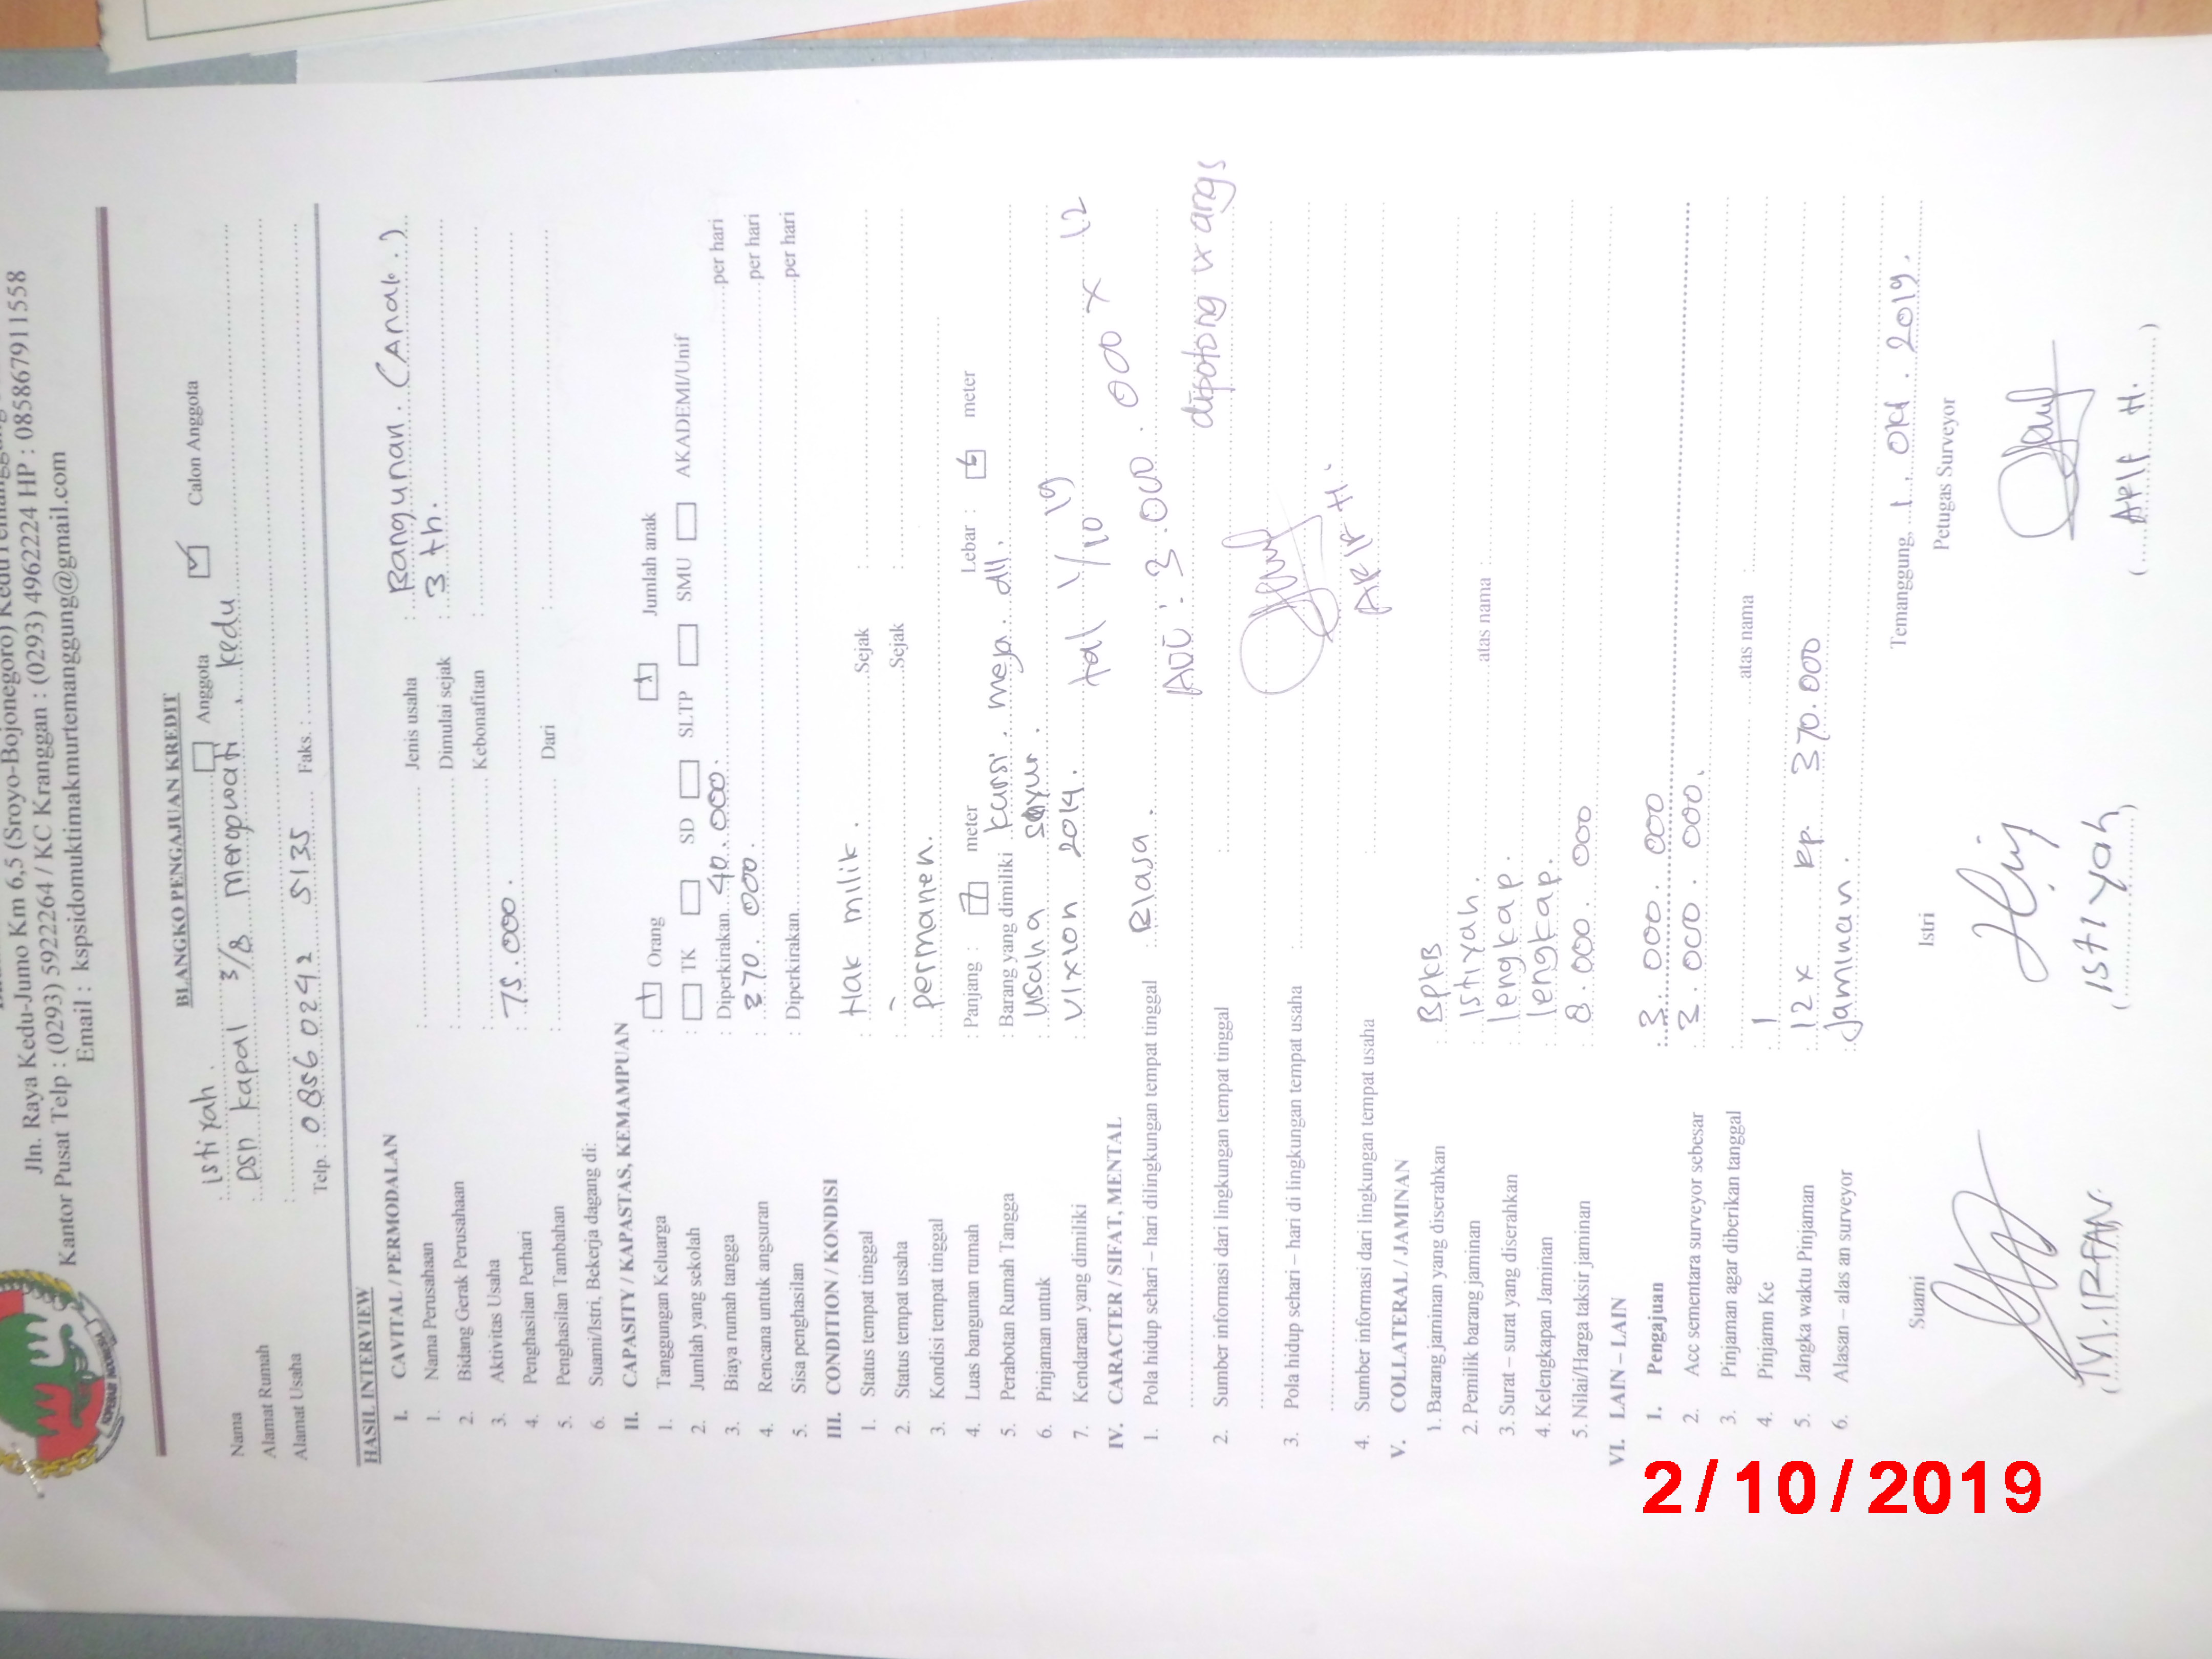 Jln. Raya Kedu-Jumo Km 6,5 (Sroyo-Bojonegoro) Kedu Temanggung
Kantor Pusat Telp : (0293) 5922264 / KC Kranggan : (0293) 4962224 HP : 085867911558
Email : kspsidomuktimakmurtemanggung@gmail.com
BLANGKO PENGAJUAN KREDIT
Nama : Istiyah. Anggota ☑ Calon Anggota
Alamat Rumah : Dsn kapal 3/8 , kedu
Alamat Usaha :
Telp. : 0856 0242 5135 Faks. :
HASIL INTERVIEW
I. CAVITAL / PERMODALAN
1. Nama Perusahaan : Jenis usaha : Bangunan. (Anak.)
2. Bidang Gerak Perusahaan : Dimulai sejak : 3 th.
3. Aktivitas Usaha : Kebonafitan :
4. Penghasilan Perhari : 75.000.
5. Penghasilan Tambahan : Dari :
6. Suami/Istri, Bekerja dagang di:
II. CAPASITY / KAPASTAS, KEMAMPUAN
1. Tanggungan Keluarga : Orang Jumlah anak
2. Jumlah yang sekolah : TK SD SLTP SMU AKADEMI/Unif
3. Biaya rumah tangga : Diperkirakan 40.000. per hari
4. Rencana untuk angsuran : 370.000. per hari
5. Sisa penghasilan : Diperkirakan per hari
III. CONDITION / KONDISI
1. Status tempat tinggal : Hak milik. Sejak :
2. Status tempat usaha : - Sejak :
3. Kondisi tempat tinggal : permanen.
4. Luas bangunan rumah : Panjang : 7 meter Lebar : 6 meter
5. Perabotan Rumah Tangga : Barang yang dimiliki kursi. meja. dll.
6. Pinjaman untuk : Usaha sayur.
7. Kendaraan yang dimiliki : Vixion 2014. tgl 1/10 19
IV. CARACTER / SIFAT, MENTAL
1. Pola hidup sehari – hari dilingkungan tempat tinggal Biasa. ACC : 3.000.000 x 12
2. Sumber informasi dari lingkungan tempat tinggal : dipotong angs
3. Pola hidup sehari – hari di lingkungan tempat usaha :
4. Sumber informasi dari lingkungan tempat usaha : ARIF H.
V. COLLATERAL / JAMINAN
1. Barang jaminan yang diserahkan : BPKB
2. Pemilik barang jaminan : Istiyah. atas nama :
3. Surat – surat yang diserahkan : lengkap.
4. Kelengkapan Jaminan : lengkap.
5. Nilai/Harga taksir jaminan : 8.000.000
VI. LAIN – LAIN
1. Pengajuan : 3.000.000
2. Acc sementara surveyor sebesar : 3.000.000.
3. Pinjaman agar diberikan tanggal : atas nama :
4. Pinjamn Ke : 1
5. Jangka waktu Pinjaman : 12 x Rp. 370.000
6. Alasan – alas an surveyor : Jaminan.
Temanggung, 1. Okt. 2019.
Suami Istri Petugas Surveyor
(M. IRFAN.) (Istiyah) (ARIF H.)
2/10/2019